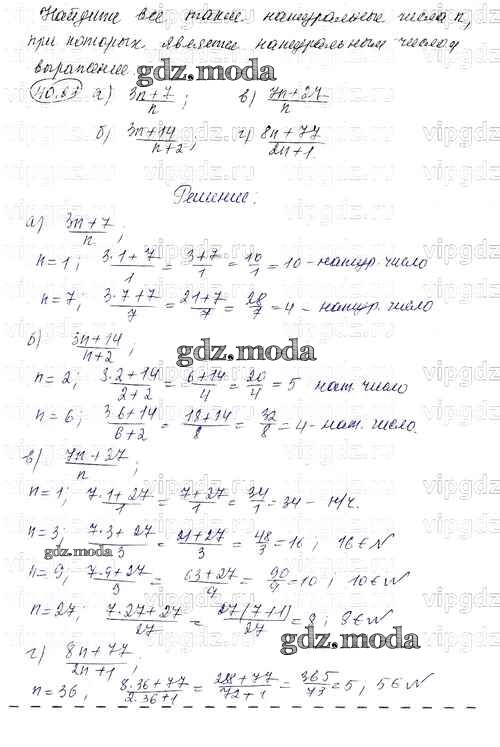 Найдите все такие натуральные числа n,
при которых является натуральным числом
выражение
gdz.moda
40.63 а) (3n+7)/n; в) (7n+27)/n
б) (3n+14)/(n+2); г) (8n+77)/(2n+1)
Решение:
а) (3n+7)/n;
n=1; (3·1+7)/1 = (3+7)/1 = 10/1 = 10 - натур. число
n=7; (3·7+7)/7 = (21+7)/7 = 28/7 = 4 - натур. число
б) (3n+14)/(n+2);
gdz.moda
n=2; (3·2+14)/(2+2) = (6+14)/4 = 20/4 = 5 нат. число
n=6; (3·6+14)/(6+2) = (18+14)/8 = 32/8 = 4 - нат. число.
в) (7n+27)/n;
n=1; (7·1+27)/1 = (7+27)/1 = 34/1 = 34 - н/ч.
n=3; (7·3+27)/3 = (21+27)/3 = 48/3 = 16; 16∈N
gdz.moda
n=9; (7·9+27)/9 = (63+27)/9 = 90/9 = 10; 10∈N
n=27; (7·27+27)/27 = 27(7+1)/27 = 8; 8∈N
gdz.moda
г) (8n+77)/(2n+1);
n=36; (8·36+77)/(2·36+1) = (288+77)/(72+1) = 365/73 = 5; 5∈N